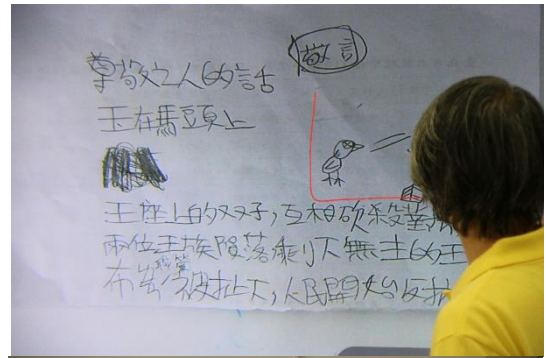 敬言
尊敬之人的話
玉在馬頭上
王座上的双子,互相砍殺
兩位王族隕落剩下無主的王
布 被扯下,人民開始反抗